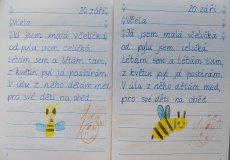 20. září
Včela
Já jsem malá včelička,
od pylu jsem celičká.
Létám sem a létám tam,
z květin pyl já posbírám.
V úlu z něho dětám med,
pro své děti na oběd.
20. září
Včela
Já jsem malá včelička,
od pylu jsem celičká.
Létám sem a létám tam,
z květin pyl já posbírám.
V úlu z něho dětám med,
pro své děti na oběd.